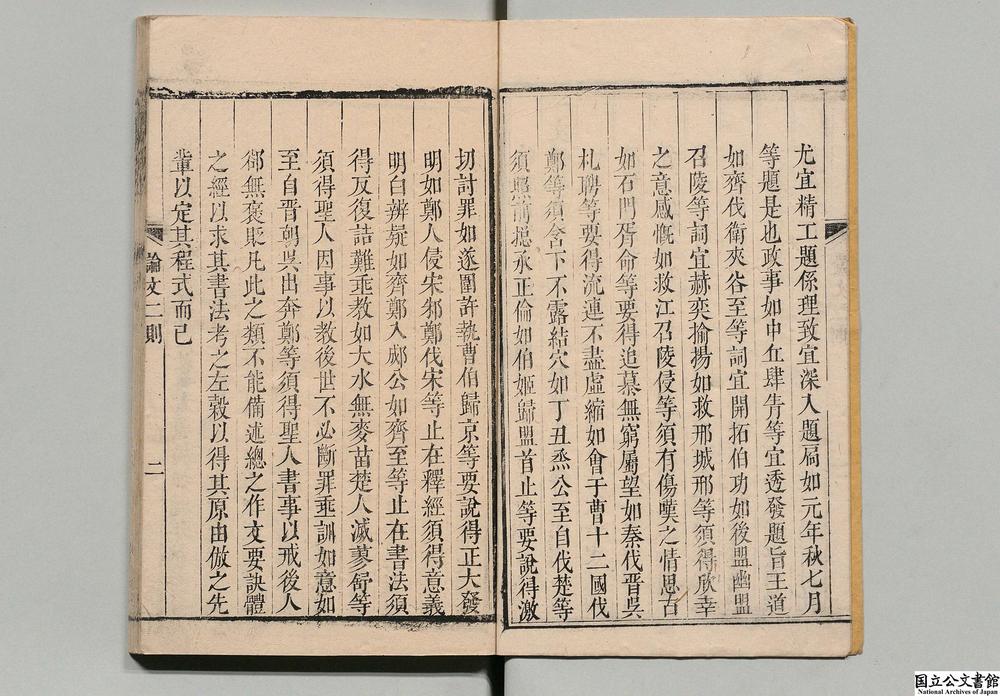 尤宜精工題係理致宜深入題扃如元年秋七月
等題是也政事如中丘肆眚等宜透發題旨王道
如齊伐衛夾谷至等詞宜開拓伯功如後盟幽盟
召陵等詞宜赫奕揄揚如救邢城邢等須得欣幸
之意感慨如救江召陵侵等須有傷嘆之情思古
如石門胥命等要得追慕無窮屬望如秦伐晉吳
札聘等要得流連不盡虛縮如會于曹十二國伐
鄭等須含下不露結穴如丁丑烝公至自伐楚等
須照前挽承正倫如伯姬歸盟首止等要說得激
切討罪如遂圍許執曹伯歸京等要說得正大發
明如鄭人侵宋邾鄭伐宋等止在釋經須得意義
明白辨疑如齊鄭入郕公如齊至等止在書法須
得反復詰難垂教如大水無麥苗楚人滅蓼舒等
須得聖人因事以教後世不必斷罪垂訓如意如
至自晉朝吳出奔鄭等須得聖人書事以戒後人
都無褒貶凡此之類不能備述總之作文要訣體
之經以求其書法考之左穀以得其原由倣之先
輩以定其程式而已
論文二則
二
国立公文書館
National Archives of Japan